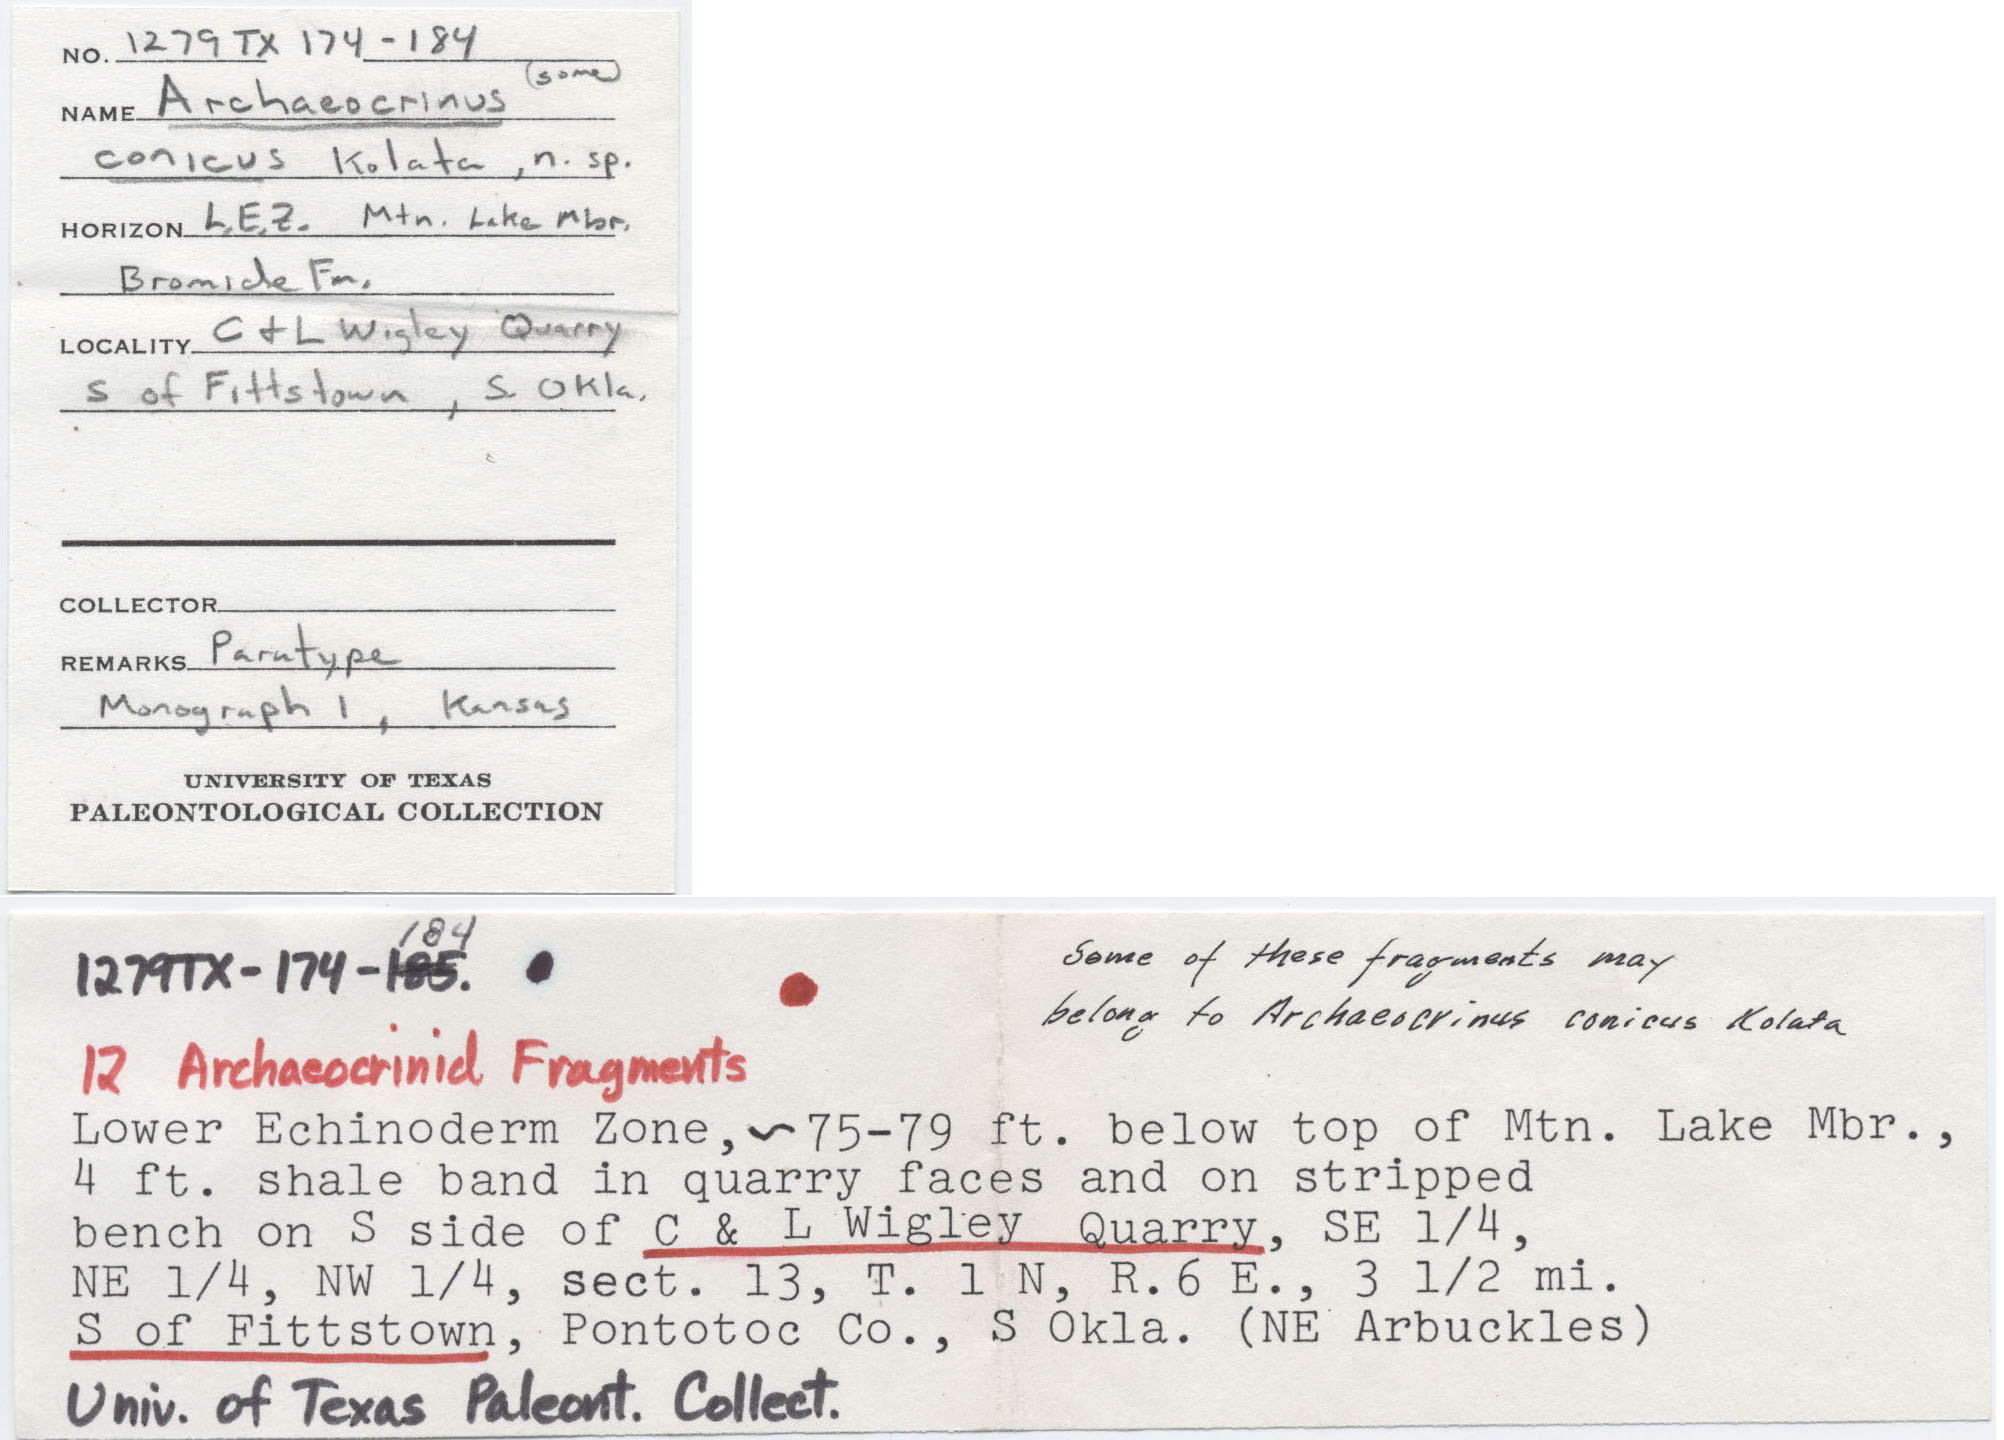 NO. 1279 TX 174-184
(some)
NAME Archaeocrinus
conicus Kolata, n. sp.
HORIZON L.E.Z. Mtn. Lake Mbr.
Bromide Fm.
LOCALITY C & L Wigley Quarry
S of Fittstown, S. Okla.
COLLECTOR
REMARKS Paratype
Monograph 1, Kansas
UNIVERSITY OF TEXAS
PALEONTOLOGICAL COLLECTION
184
1279TX-174-185.
Some of these fragments may
belong to Archaeocrinus conicus Kolata
12 Archaeocrinid Fragments
Lower Echinoderm Zone, ~75-79 ft. below top of Mtn. Lake Mbr.,
4 ft. shale band in quarry faces and on stripped
bench on S side of C & L Wigley Quarry, SE 1/4,
NE 1/4, NW 1/4, sect. 13, T. 1 N, R.6 E., 3 1/2 mi.
S of Fittstown, Pontotoc Co., S Okla. (NE Arbuckles)
Univ. of Texas Paleont. Collect.